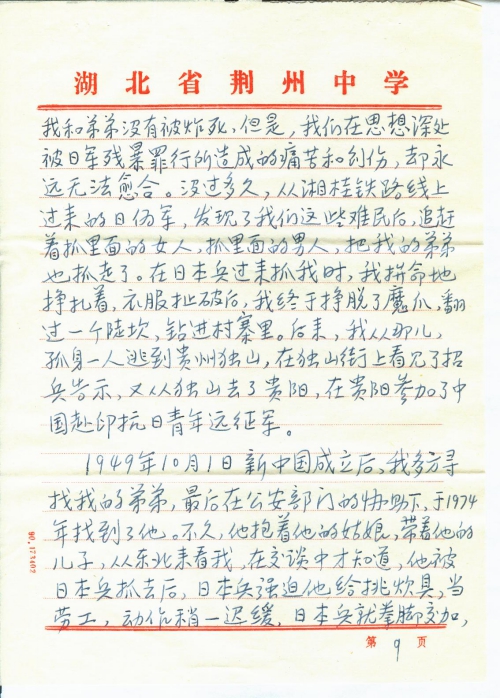 湖北省荆州中学
我和弟弟没有被炸死,但是,我们在思想深处
被日军残暴罪行所造成的痛苦和创伤,却永
远无法愈合。没过多久,从湘桂铁路线上
过来的日伪军,发现了我们这些难民后,追赶
着抓里面的女人,抓里面的男人,把我的弟弟
也抓走了。在日本兵过来抓我时,我拼命地
挣扎着,衣服扯破后,我终于挣脱了魔爪,翻
过一个陡坎,钻进村寨里。后来,我从那儿,
孤身一人逃到贵州独山,在独山街上看见了招
兵告示,又从独山去了贵阳,在贵阳参加了中
国赴印抗日青年远征军。
1949年10月1日新中国成立后,我多方寻
找我的弟弟,最后在公安部门的协助下,于1974
年找到了他。不久,他抱着他的姑娘,带着他的
儿子,从东北来看我,在交谈中才知道,他被
日本兵抓去后,日本兵强迫他给挑炊具,当
劳工,动作稍一迟缓,日本兵就拳脚交加,
第9页